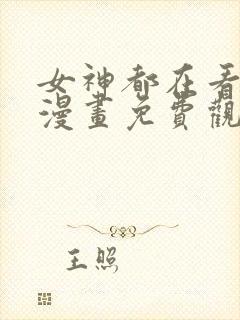 女神都在看
漫畫免費觀
王照